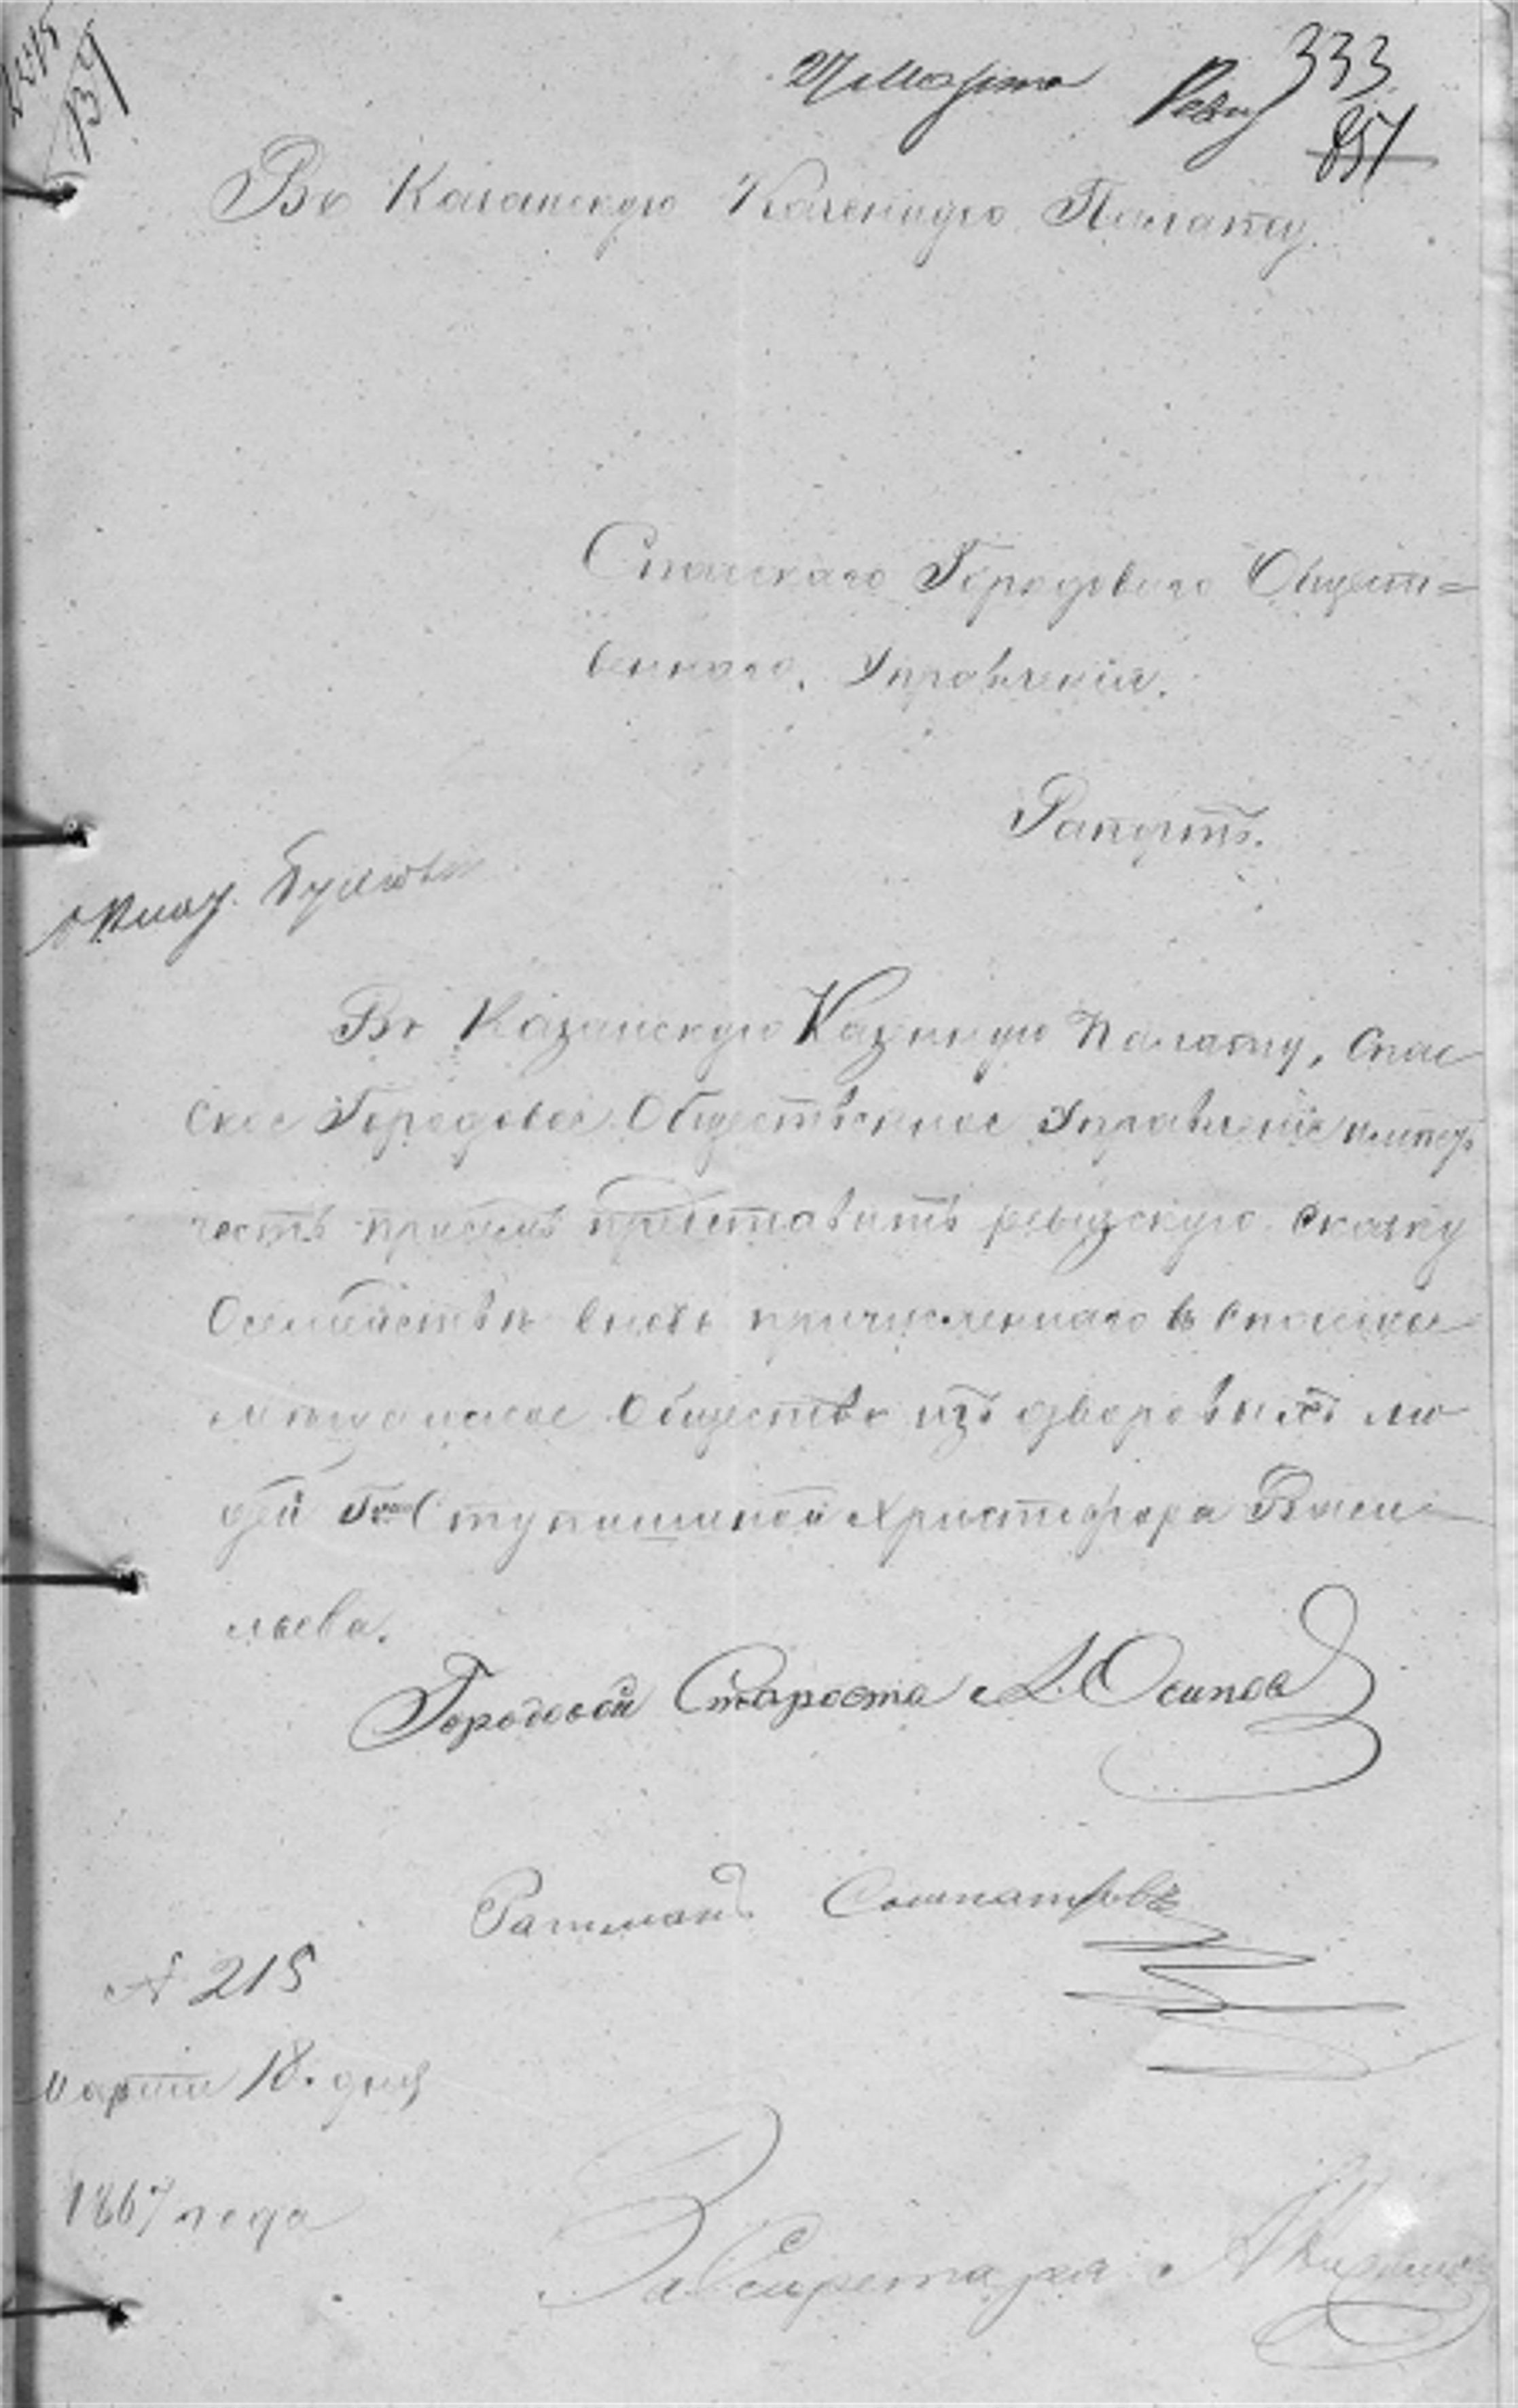 27 Марта Ревиз 333
851
Въ Казанскую Казенную Палату.
Спасскаго Городоваго Общест=
веннаго Управленія.
Рапортъ.
Въ Казанскую Казенную Палату, Спас
ское Городовое Общественное Управленіе имѣетъ
честь представить ревизскую сказку
о семействѣ вновь причисленнаго въ Спасское
мѣщанское Общество изъ дворовыхъ лю
дей Гжи Ступишиной Христофора Васи
льева.
Городовой Староста А. Осиповъ
Ратманъ
№ 215
Марта 18. дня
1867 года
За Секретаря